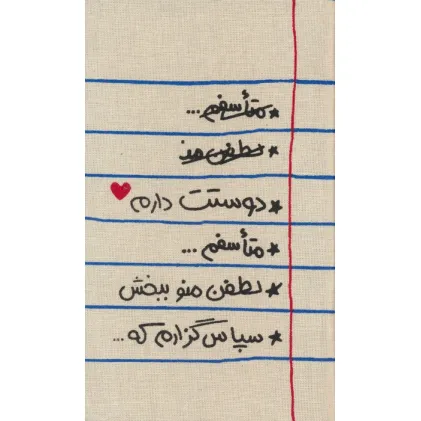 * متأسفم...
* لطفن من
* دوستت دارم
* متأسفم ...
* لطفن منو ببخش
* سپاس‌گزارم که...